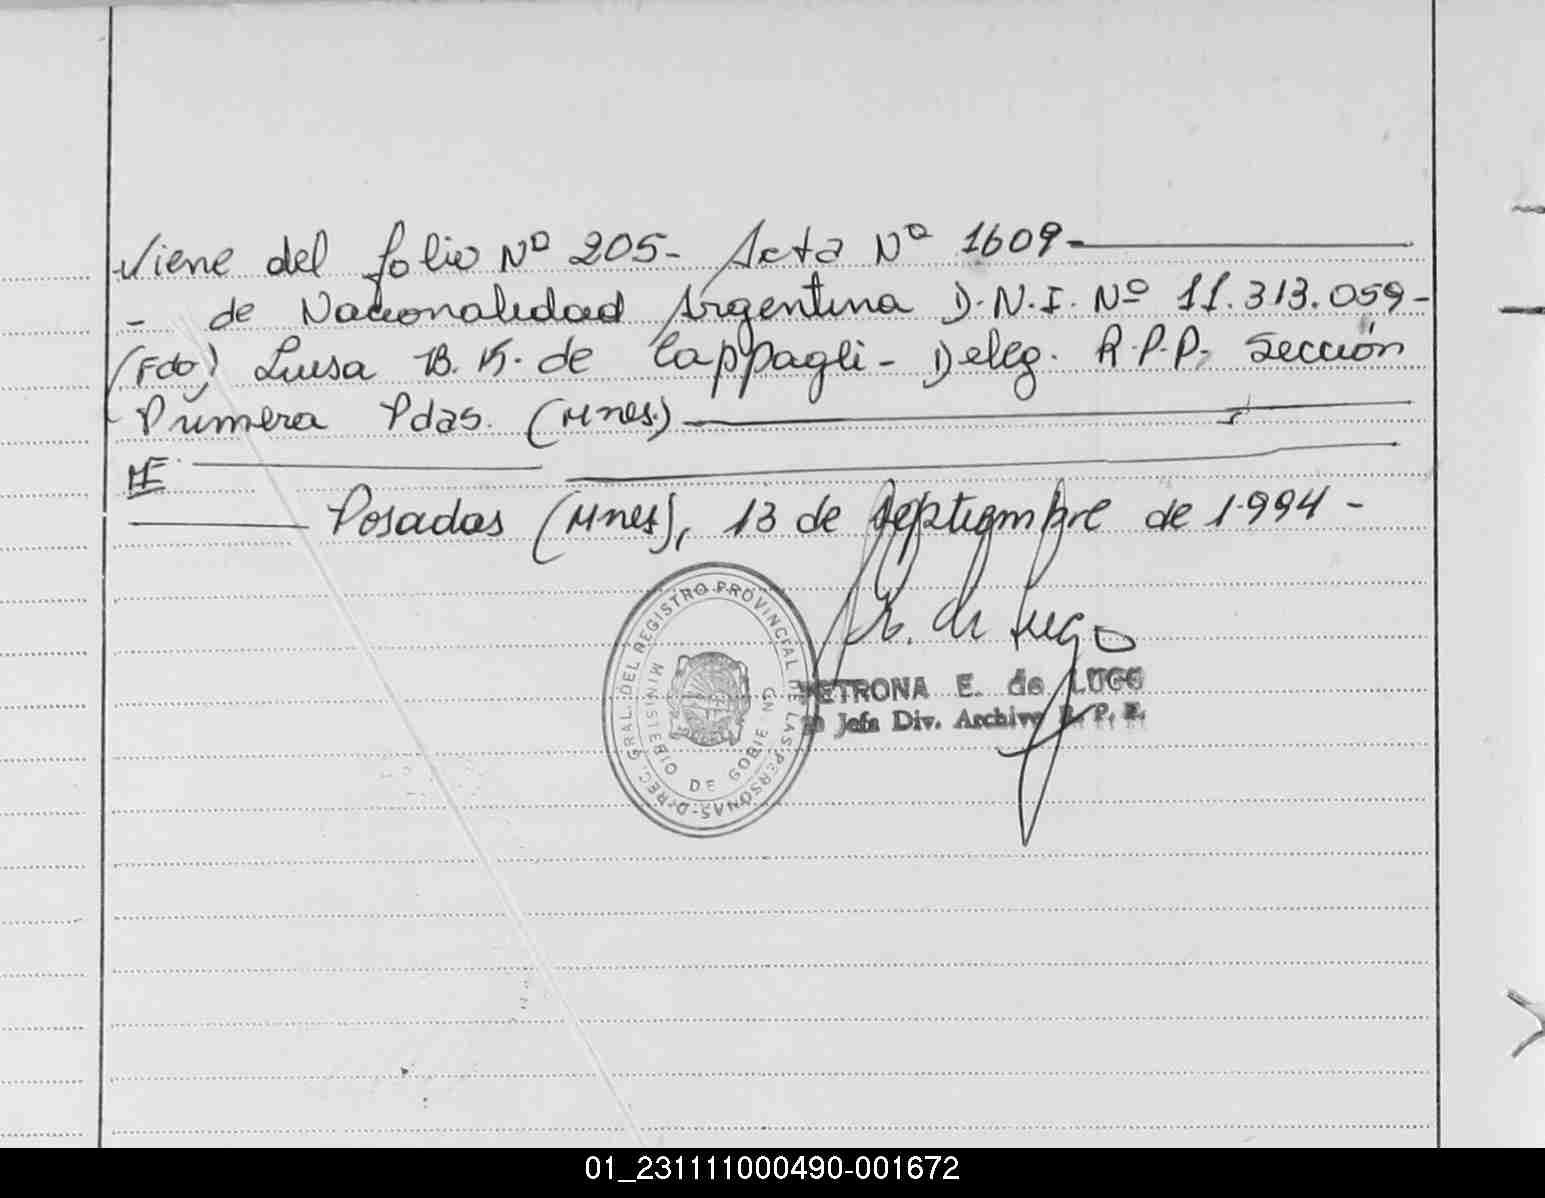 Viene del folio Nº 205- Acta Nº 1609-
- de Nacionalidad Argentina D.N.I. Nº 11.313.059-
(Fdo) Luisa B. K. de Cappagli - Deleg. R.P.P. Sección
Primera Pdas. (Mnes.)
Posadas (Mnes), 13 de Septiembre de 1994-
DIREC. GRAL. DEL REGISTRO PROVINCIAL DE LAS PERSONAS
MINISTERIO DE GOBIERNO
de Lugo
PETRONA E. de LUGO
Jefa Div. Archivo R. P. P.
01_231111000490-001672